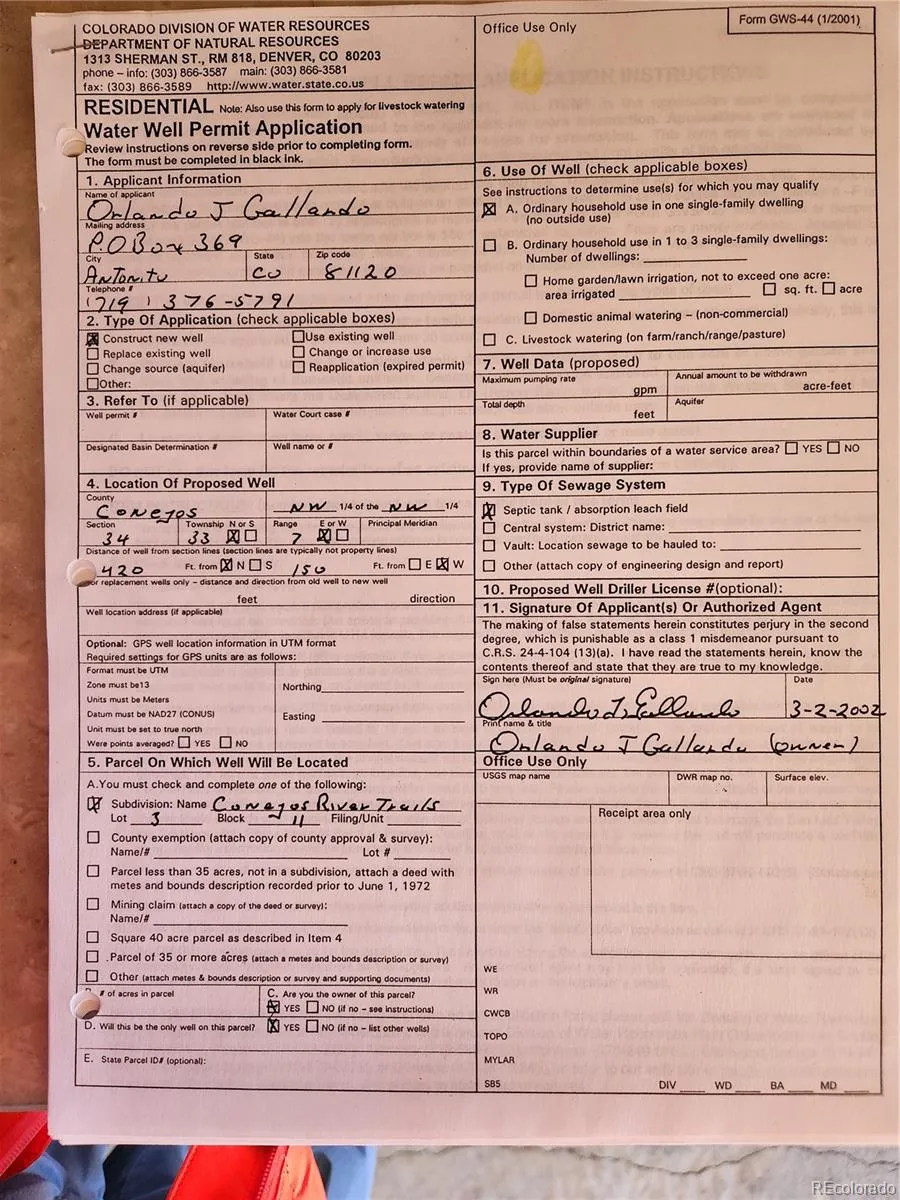 COLORADO DIVISION OF WATER RESOURCES
DEPARTMENT OF NATURAL RESOURCES
1313 SHERMAN ST., RM 818, DENVER, CO 80203
phone – info: (303) 866-3587 main: (303) 866-3581
fax: (303) 866-3589 http://www.water.state.co.us
RESIDENTIAL Note: Also use this form to apply for livestock watering
Water Well Permit Application
Review instructions on reverse side prior to completing form.
The form must be completed in black ink.
1. Applicant Information
Name of applicant
Orlando J Gallando
Mailing address
P.O Box 369
City State Zip code
Antonito CO 81120
Telephone #
(719) 376-5791
2. Type Of Application (check applicable boxes)
Construct new well Use existing well
Replace existing well Change or increase use
Change source (aquifer) Reapplication (expired permit)
Other:
3. Refer To (if applicable)
Well permit # Water Court case #
Designated Basin Determination # Well name or #
4. Location Of Proposed Well
County
Conejos NW 1/4 of the NW 1/4
Section Township N or S Range E or W Principal Meridian
34 33 7
Distance of well from section lines (section lines are typically not property lines)
420 Ft. from N S 150 Ft. from E W
For replacement wells only – distance and direction from old well to new well
feet direction
Well location address (if applicable)
Optional: GPS well location information in UTM format
Required settings for GPS units are as follows:
Format must be UTM
Zone must be13 Northing
Units must be Meters
Datum must be NAD27 (CONUS) Easting
Unit must be set to true north
Were points averaged? YES NO
5. Parcel On Which Well Will Be Located
A.You must check and complete one of the following:
Subdivision: Name Conejos River Trails
Lot 3 Block 11 Filing/Unit
County exemption (attach copy of county approval & survey):
Name/# Lot #
Parcel less than 35 acres, not in a subdivision, attach a deed with
metes and bounds description recorded prior to June 1, 1972
Mining claim (attach a copy of the deed or survey):
Name/#
Square 40 acre parcel as described in Item 4
.Parcel of 35 or more acres (attach a metes and bounds description or survey)
Other (attach metes & bounds description or survey and supporting documents)
# of acres in parcel C. Are you the owner of this parcel?
YES NO (if no – see instructions)
D. Will this be the only well on this parcel? YES NO (if no – list other wells)
E. State Parcel ID# (optional):
Form GWS-44 (1/2001)
Office Use Only
6. Use Of Well (check applicable boxes)
See instructions to determine use(s) for which you may qualify
A. Ordinary household use in one single-family dwelling
(no outside use)
B. Ordinary household use in 1 to 3 single-family dwellings:
Number of dwellings:
Home garden/lawn irrigation, not to exceed one acre:
area irrigated sq. ft. acre
Domestic animal watering – (non-commercial)
C. Livestock watering (on farm/ranch/range/pasture)
7. Well Data (proposed)
Maximum pumping rate Annual amount to be withdrawn
gpm acre-feet
Total depth Aquifer
feet
8. Water Supplier
Is this parcel within boundaries of a water service area? YES NO
If yes, provide name of supplier:
9. Type Of Sewage System
Septic tank / absorption leach field
Central system: District name:
Vault: Location sewage to be hauled to:
Other (attach copy of engineering design and report)
10. Proposed Well Driller License #(optional):
11. Signature Of Applicant(s) Or Authorized Agent
The making of false statements herein constitutes perjury in the second
degree, which is punishable as a class 1 misdemeanor pursuant to
C.R.S. 24-4-104 (13)(a). I have read the statements herein, know the
contents thereof and state that they are true to my knowledge.
Sign here (Must be original signature) Date
Orlando J. Gallando 3-2-2002
Print name & title
Orlando J Gallando (owner)
Office Use Only
USGS map name DWR map no. Surface elev.
Receipt area only
WE
WR
CWCB
TOPO
MYLAR
SB5 DIV WD BA MD
REcolorado